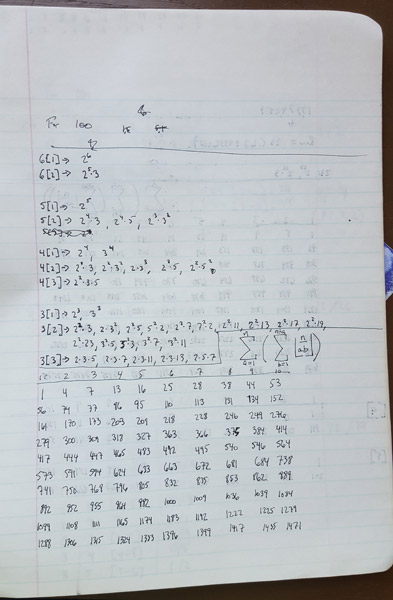 For 100
6[1] → 2⁶
6[2] → 2⁵·3
5[1] → 2⁵
5[2] → 2⁴·3, 2⁴·5, 2³·3²
4[1] → 2⁴, 3⁴
4[2] → 2³·3, 2²·3², 2·3³, 2³·5, 2²·5²
4[3] → 2²·3·5
3[1] → 2³, 3³
3[2] → 2²·3, 2·3², 2²·5, 5²·2, 2²·7, 7²·2, 2²·11, 2²·13, 2²·17, 2²·19,
2²·23, 3²·5, 5²·3, 3²·7, 3²·11
3[3] → 2·3·5, 2·3·7, 2·3·11, 2·3·13, 2·5·7
2 3 4 5 6 7 8 9
1 4 7 13 16 25 28 38 44 53
56 74 77 86 95 110 113 131 134 152
116 170 173 203 209 218 228 246 249 276
279 300 309 318 327 363 366 375 384 414
417 444 447 465 483 492 495 540 546 564
573 591 594 624 633 663 672 681 684 738
741 750 768 796 805 832 835 853 862 889
892 952 955 964 982 1000 1009 1036 1039 1084
1099 1108 1111 1165 1174 1183 1192 1222 1225 1279
1288 1306 1315 1324 1383 1396 1399 1417 1435 1471